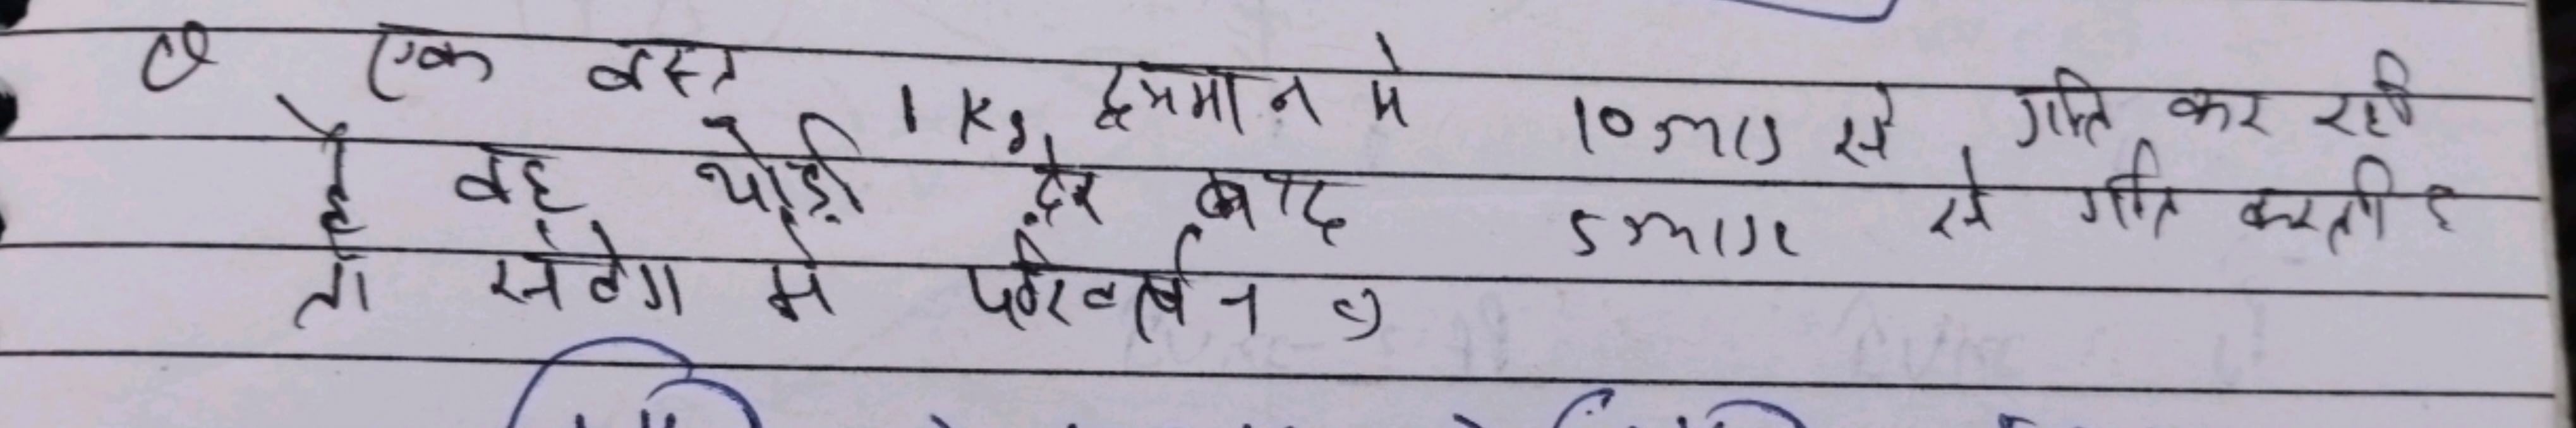 Q एक वस्तु 1 kg द्रव्यमान मे 10 m/s से गति कर रही
है वह थोड़ी देर बाद 5 m/s से गति करती है
तो संवेग में परिवर्तन ?